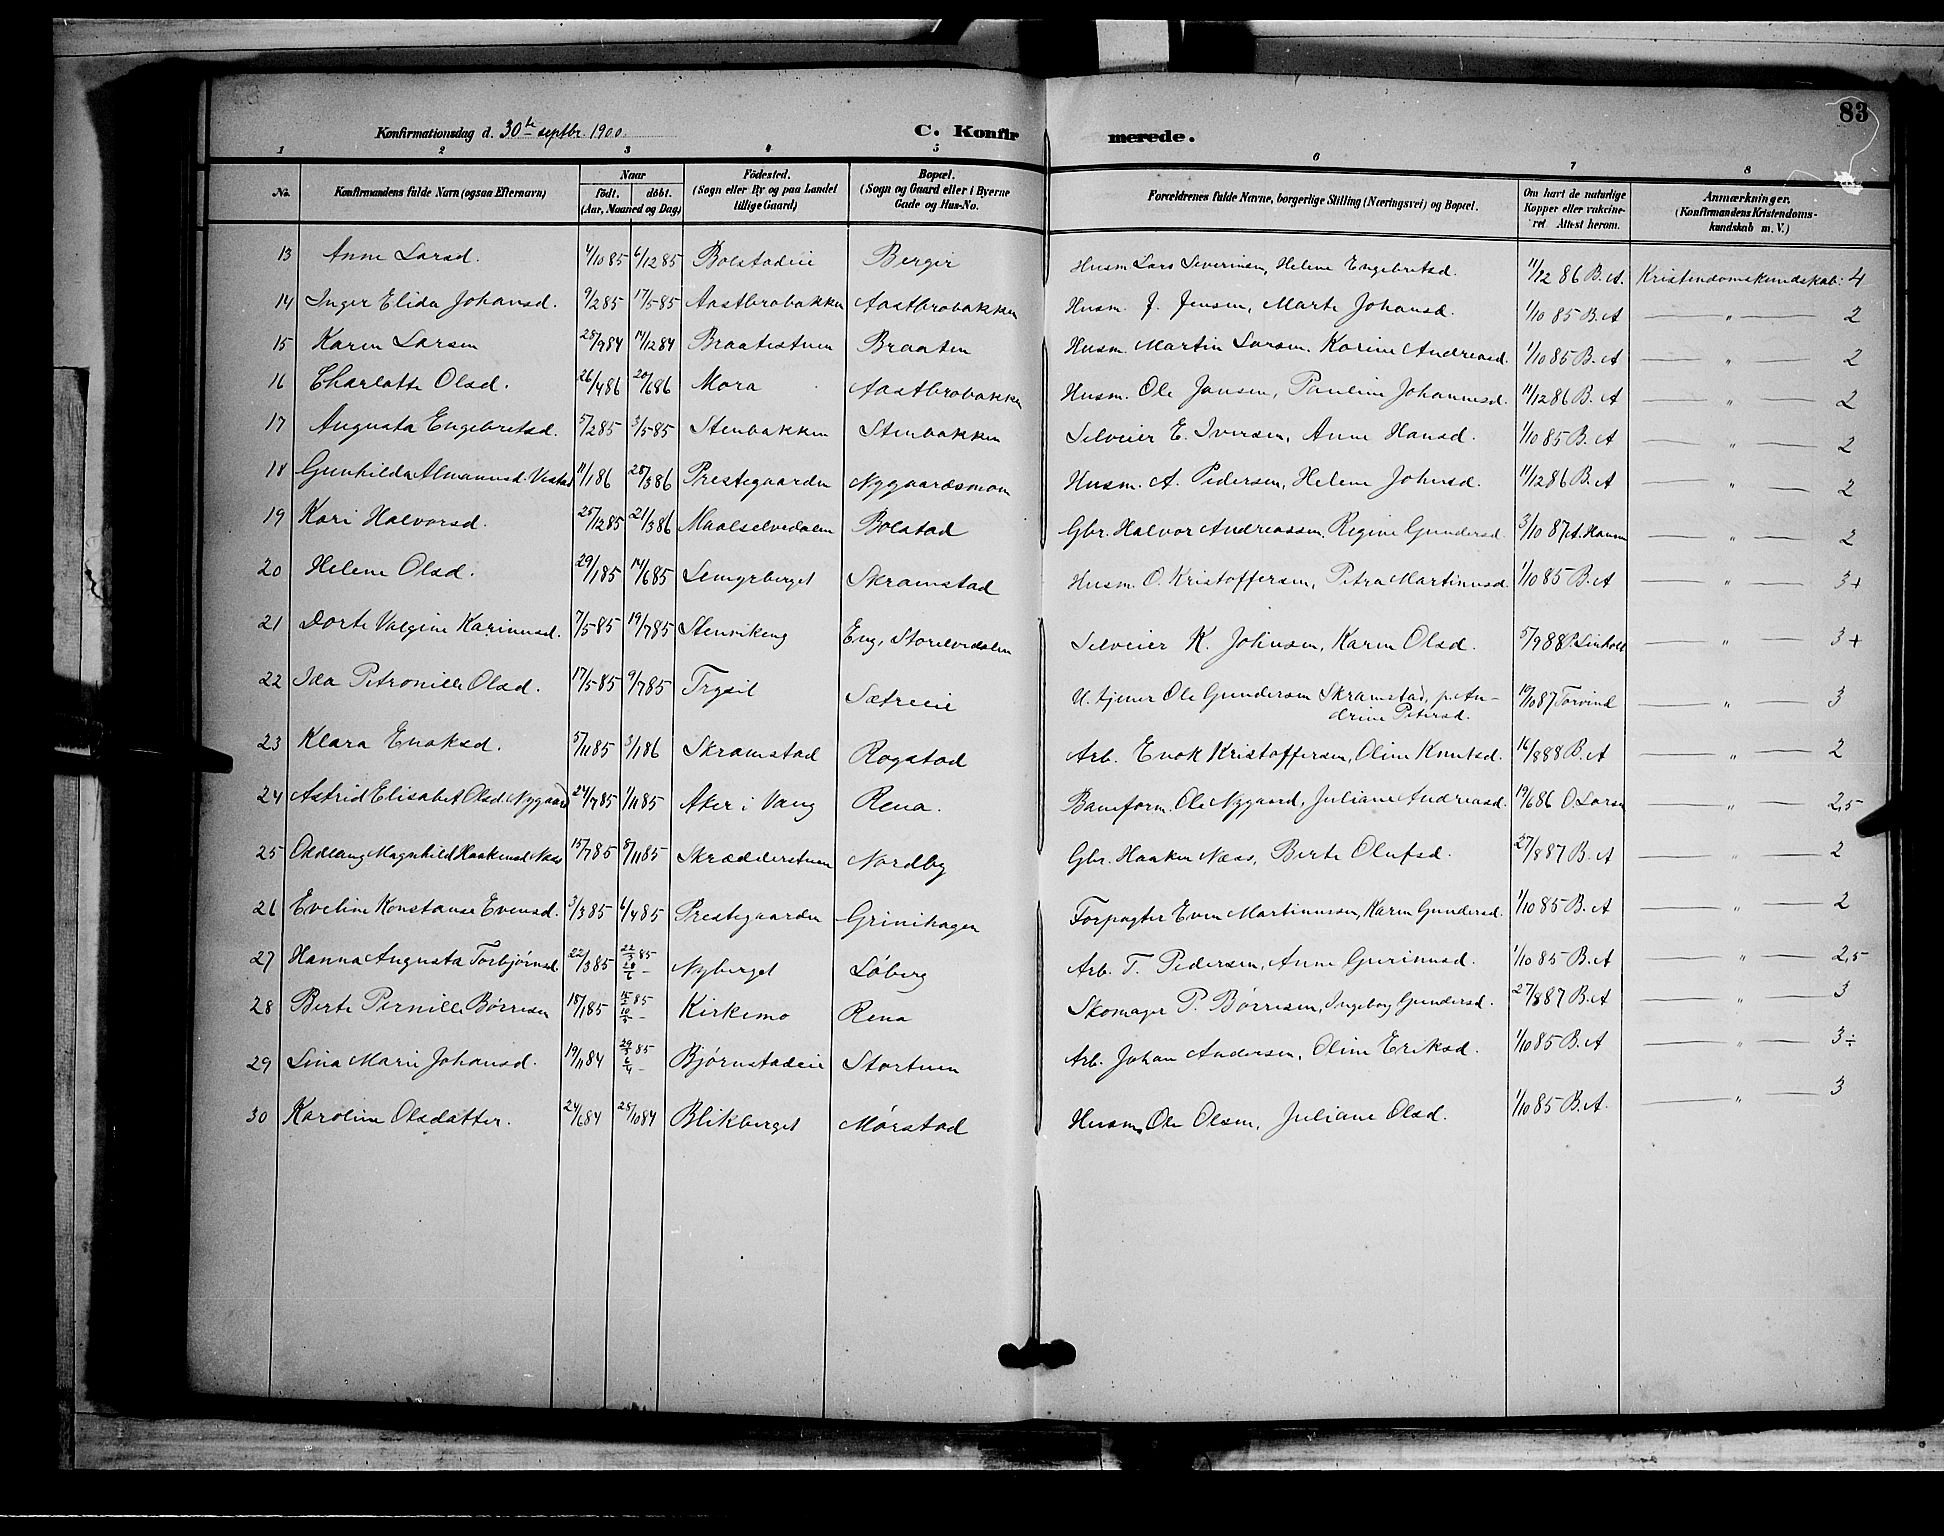 83
Konfirmationsdag d. 30te septbr. 1900.
C. Konfirmerede.
1 2 3 4 5 6 7 8
No. Konfirmandens fulde Navn (ogsaa Efternavn) Naar født. døbt. (Aar, Maaned og Dag) Fødested. (Sogn eller By og paa Landet tillige Gaard) Bopæl. (Sogn og Gaard eller i Byerne Gade og Hus-No. Forældrenes fulde Navne, borgerlige Stilling (Næringsvei) og Bopæl. Om havt de naturlige Kopper eller vakcineret Attest herom. Anmærkninger. (Konfirmandens Kristendomskundskab m. V.)
13 Anne Larsd. 4/10 85 6/12 85 Bolstadeie Berger Husm Lars Severinsen, Helene Engebretsd. 11/12 86 B. A. Kristendomskundskab: 4
14 Inger Elida Johansd. 9/2 85 17/5 85 Aastbrobakken Aastbrobakken Husm. J. Jensen, Marte Johansd. 1/10 85 B. A — " — 2
15 Karen Larsen 28/9 84 14/12 84 Braatestuen Braaten Husm. Martin Larsen, Karine Andreasd. 1/10 85 B. A — " — 2
16 Charlotte Olsd. 26/4 86 20/6 86 Mora Aastbrobakken Husm. Ole Jansen, Pauline Johannesd. 11/12 86 B. A — " — 2
17 Augusta Engebretsd. 5/2 85 3/5 85 Stenbakken Stenbakken Selveier E. Iversen, Anne Hansd. 1/10 85 B. A — " — 2
18 Gunhilda Almannsd. Vestad 11/1 86 28/3 86 Prestegaarden Nygaardsmoen Husm. A. Pedersen, Helene Johnsd. 11/12 86 B. A — " — 2
19 Kari Halvorsd. 25/12 85 21/3 86 Maalselvedalen Bolstad Gbr. Halvor Andreassen, Regine Gundersd. 3/10 87 A. Hansen — " — 2
20 Helene Olsd. 29/1 85 14/6 85 Skramstad Husm. O. Kristoffersen, Petra Martinusd. 1/10 85 B. A — " — 3+
21 Dorte Valgine Karinusd. 7/5 85 19/7 85 Stenvikeng Eng, Storelvedalen Selveier K. Johnsen, Karen Olsd. 5/9 88 — " — 3+
22 Ida Petronille Olsd. 17/5 85 9/7 85 Trysil Sætreeie U. tjener Ole Gundersen Skramstad, p. Andrine Petersd. 19/10 87 Torvind — " — 3
23 Klara Enoksd. 5/11 85 3/1 86 Skramstad Rogstad Arb. Enok Kristoffersen, Oline Knutsd. 16/8 88 B. A — " — 2
24 Astrid Elisabet Olsd. Nygaard 24/7 85 1/11 85 Aker i Vang Rena. Baneform. Ole Nygaard, Juliane Andreasd. 19/6 86 O Larsen — " — 2,5
25 Oddlaug Magnhild Haakensd. Næss 15/7 85 8/11 85 Skrædderstuen Nordby Gbr. Haaken Næss, Berte Olufsd. 27/8 87 B. A — " — 2
26 Eveline Konstanse Evensd. 3/3 85 6/4 85 Prestegaarden Grinihagen Forpagter Even Martinussen, Karen Gundersd. 1/10 85 B. A — " — 2
27 Hanna Augusta Torbjørnsd. 22/3 85 22/3 85 Nyberget Løberg Arb. T. Pedersen, Anne Gurinusd. 1/10 85 B. A — " — 2,5
28 Berte Pernille Børresen 18/1 85 15/2 85 10/5 — Kirkemo Rena Skomager P. Børresen, Ingeborg Gundersd. 27/8 87 B. A — " — 3
29 Lina Marie Johansd. 19/11 84 29/3 85 6/4 — Bjørnstadeie Stortuen Arb. Johan Andersen, Oline Eriksd. 1/10 85 B. A — " — 3÷
30 Karoline Olsdatter. 24/6 84 28/10 84 Blikberget Mørstad Husm. Ole Olsen, Juliane Olsd. 1/10 85 B. A. — " — 3